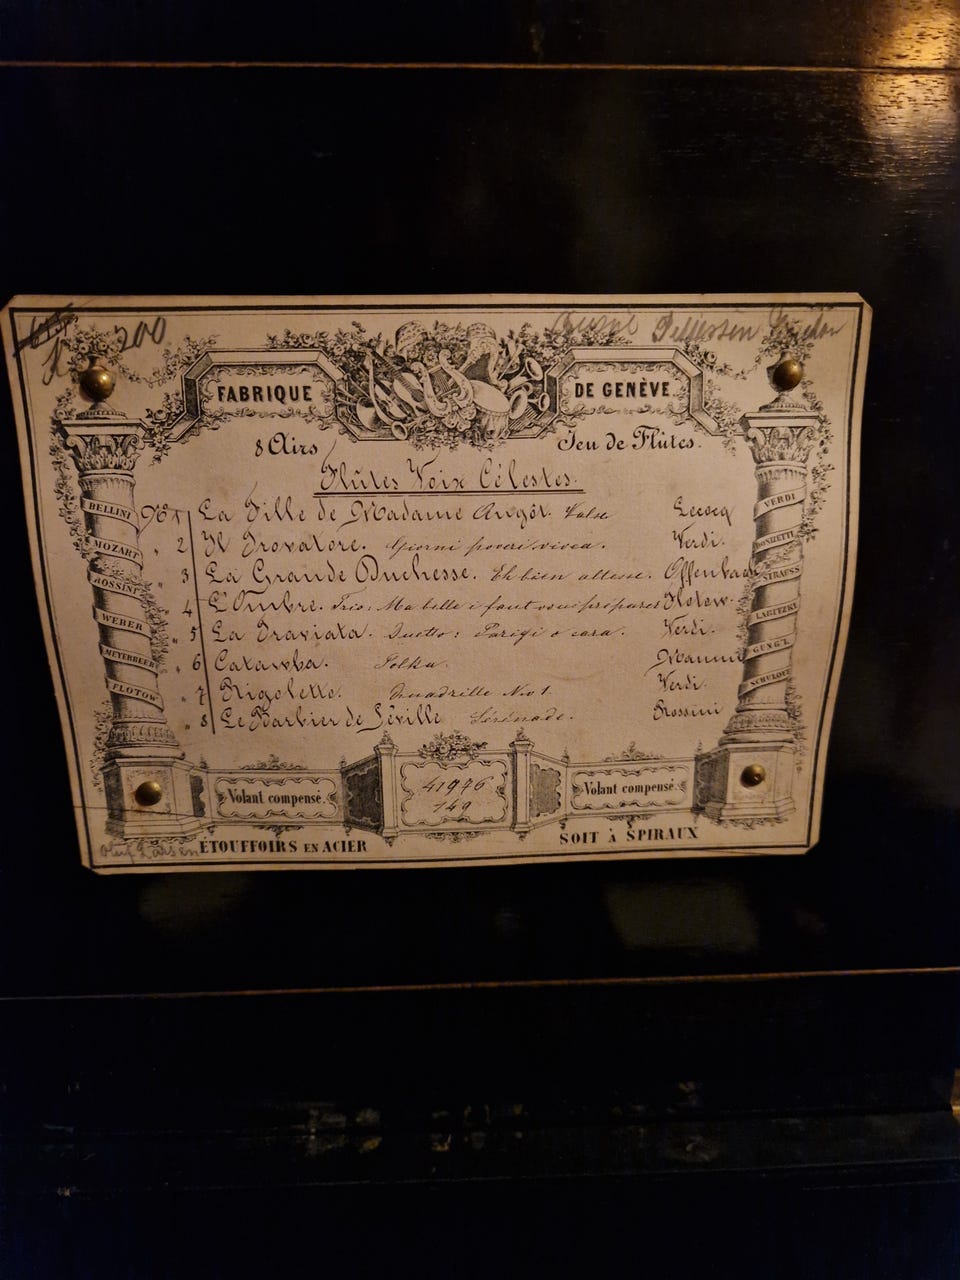 200
FABRIQUE DE GENÈVE
8 Airs Jeu de Flûtes.
Flûtes Voix Célestes.
No 1 La Fille de Madame Angot. Valse Lecocq
" 2 Il Trovatore. Giorni poveri vivea. Verdi.
" 3 La Grande Duchesse. Eh bien altesse. Offenbach
" 4 L'Ombre. Trio: Ma belle i faut vous préparer Flotow.
" 5 La Traviata. Duetto: Parigi o cara. Verdi.
" 6 Catawba. Polka.
" 7 Rigoletto. Quadrille No 1 Verdi.
" 8 Le Barbier de Séville Sérénade. Rossini
BELLINI
MOZART
ROSSINI
WEBER
MEYERBEER
FLOTOW
VERDI
DONIZETTI
STRAUSS
LABITZKY
GUNG'L
SCHULOFF
Volant compensé.
41976
149
Volant compensé.
ÉTOUFFOIRS EN ACIER
SOIT À SPIRAUX
Oluf Larsen